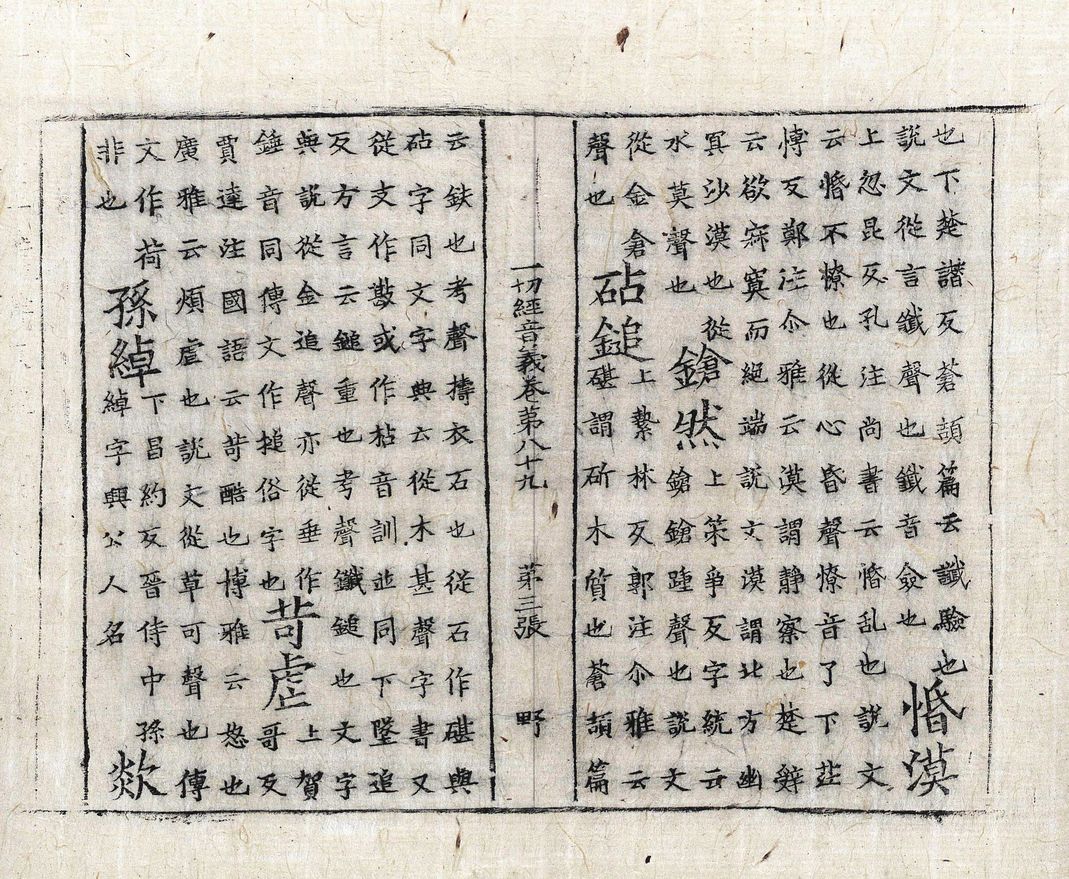 也下楚譖反蒼頡篇云讖驗也
說文從言韱聲也韱音僉也
惛漠
上忽昆反孔注尚書云惛乱也說文
云惛不憭也從心昏聲憭音了下莊
慱反鄭注尒雅云漠謂静察也楚辤
云欲寂寞而絕端說文漠謂北方幽
冥沙漠也從
水莫聲也
鎗然
上策爭反字統云
鎗鎗踵聲也說文
從金倉
聲也
砧鎚
上縶林反郭注尒雅云
碪謂斫木質也蒼頡篇
一切經音義卷第八十九 第三張 野
云鈇也考聲擣衣石也從石作碪與
砧字同文字典云從木甚聲字書又
從支作㪣或作枮音訓並同下墜追
反方言云鎚重也考聲鐵鎚也文字
典說從金追聲亦從垂作
錘音同傳文作搥俗字也
苛虐
上賀
哥反
賈逵注國語云苛酷也博雅云怒也
廣雅云煩虐也說文從草可聲也傳
文作荷
非也
孫綽
下昌約反晉侍中孫
綽字興公人名
欻